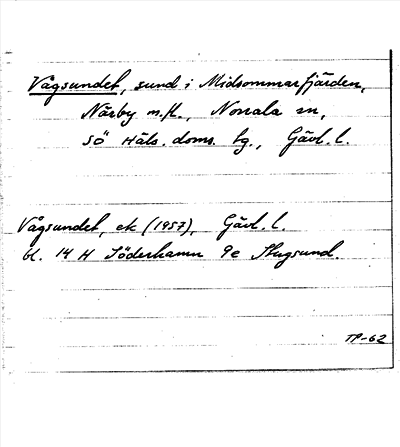 Vågsundet, sund i Midsommarfjärden,
Närby m.fl., Norrala sn,
Sö Häls. doms. tg., Gävl. l.
Vågsundet, ek (1957), Gävl. l.
bl. 14 H Söderhamn 9e Stugsund.
TP-62